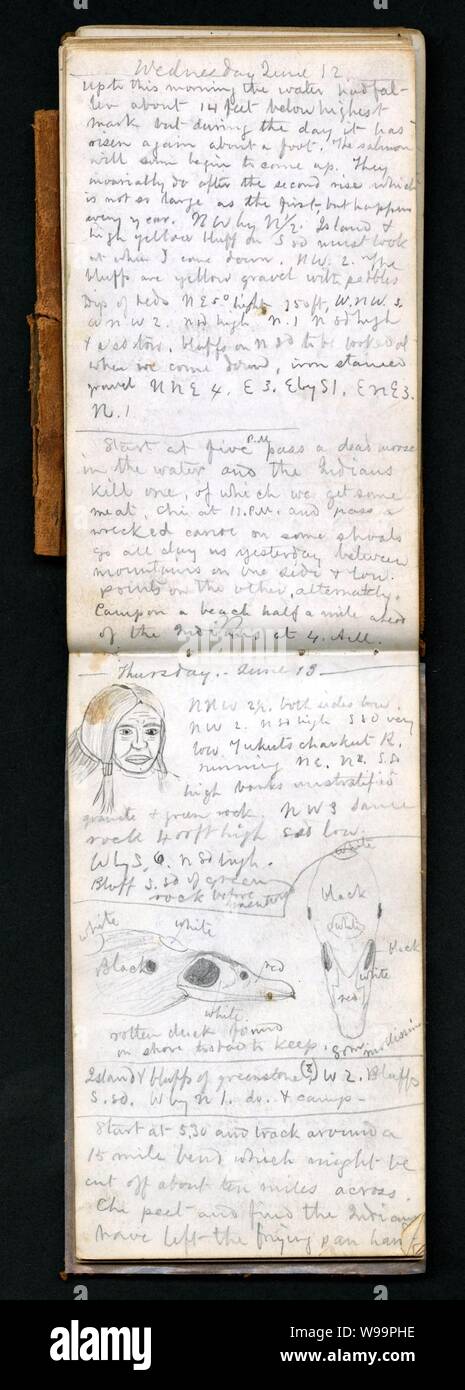 Wednesday June 12.
up to this morning the water had fal-
len about 14 feet below highest
mark but during the day it has
risen again about a foot. The salmon
will soon begin to come up. They
invariably do after the second rise which
is not so large as the first, but happens
every year. NW by N 1/2. Island &
high yellow bluff on S sd must look
at when I come down. NW. 2. The
bluffs are yellow gravel with pebbles
Dip of beds NE 5° hight 75 ft, W.NW. 3.
WNW 2. N sd high. N. 1 N sd high
& S sd low. bluffs on N sd to be looked at
when we come down, iron stained
gravel NNE 4. E 3. E by S 1. ENE 3.
N. 1
Start at five P.M. pass a dead moose
in the water and the Indians
kill one, of which we get some
meat. Chi at 11. P.M. and pass a
wrecked canoe on some shoals
go all day as yesterday between
mountains on one side & low
points on the other, alternately.
Camp on a beach half a mile ahead
of the Indians at 4. A.M.
Thursday. - June 13
NNW 2 1/2. both sides low.
NW 2. N sd high S sd very
low. R.
running NE. S.S.
high banks unstratified
granite & green rock. NW 3 same
rock 400 ft high S sd low.
W by S. 6. N sd high.
Bluff S. sd of green
rock before mentioned
white
black
white
black
white
red
white
white
Black
red
white
rotten duck found
on shore too bad to keep.
Island & bluffs of greenstone (?) W 2. Bluffs
S. sd. W by N 1. do. & camp -
Start at 5.30 and track around a
15 mile bend which might be
cut off about ten miles across.
Chi peet and find the Indians
have left the frying pan
alamy
a
a
a
a
alamy
Image ID: W99PHE
www.alamy.com